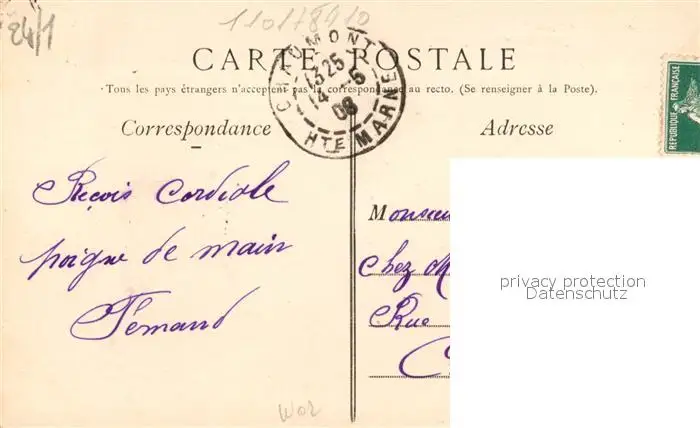 24/1
110178910
CARTE POSTALE
Tous les pays étrangers n'acceptent pas la correspondance au recto. (Se renseigner à la Poste).
CHAUMONT
1325
14-5
08
HTE MARNE
REPUBLIQUE FRANÇAISE
Correspondance
Adresse
Reçois Cordiale
poigne de main
Fernand
Monsieu
Chez M
Rue
privacy protection
Datenschutz